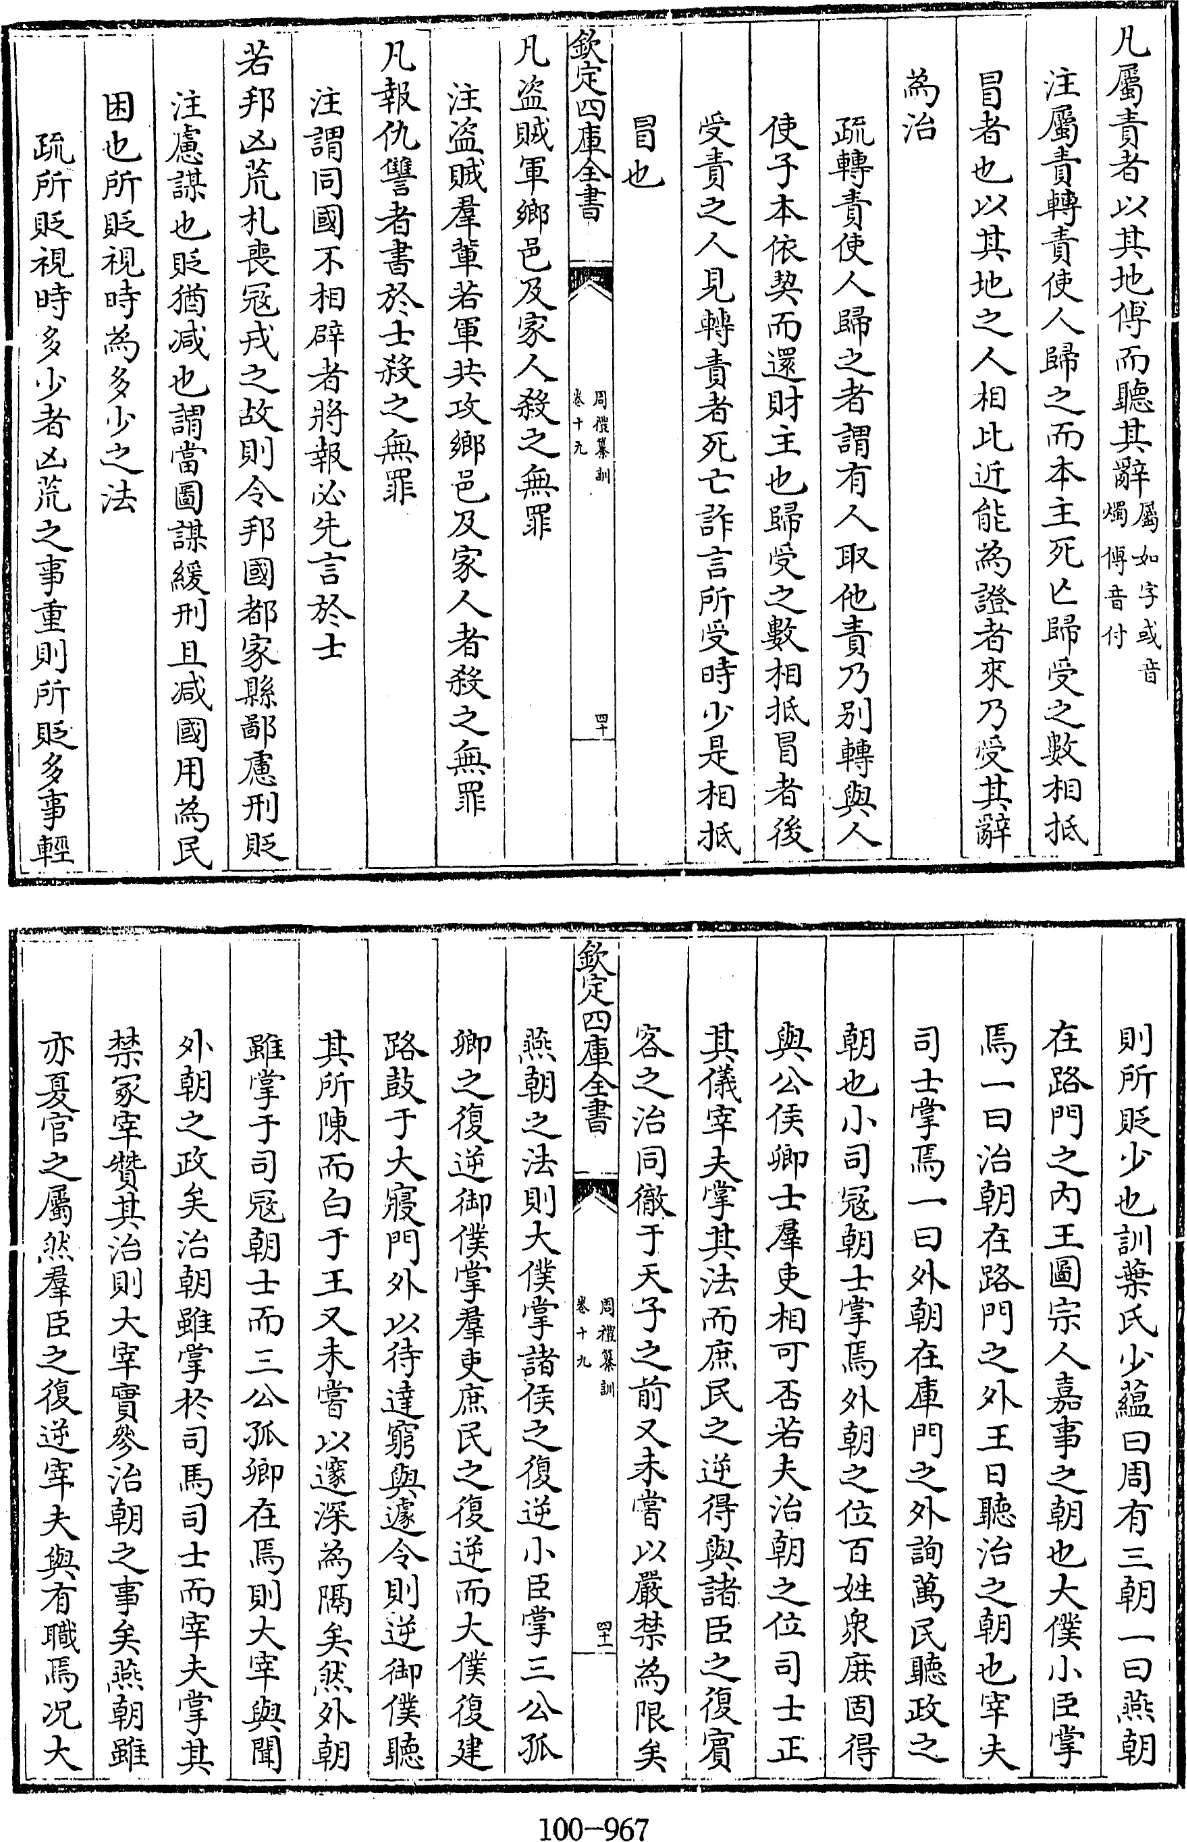 凡屬責者以其地傅而聽其辭屬如字或音燭傅音付
注屬責轉責使人歸之而本主死亡歸受之數相抵
冒者也以其地之人相比近能為證者來乃受其辭
為治
疏轉責使人歸之者謂有人取他責乃别轉與人
使子本依契而還財主也歸受之數相抵冒者後
受責之人見轉責者死亡詐言所受時少是相抵
冒也
欽定四庫全書
周禮纂訓
卷十九
四十
凡盗賊軍鄉邑及家人殺之無罪
注盗賊羣軰若軍共攻鄉邑及家人者殺之無罪
凡報仇讐者書於士殺之無罪
注謂同國不相辟者將報必先言於士
若邦凶荒札喪冦戎之故則令邦國都家縣鄙慮刑貶
注慮謀也貶猶减也謂當圖謀緩刑且减國用為民
困也所貶視時為多少之法
疏所貶視時多少者凶荒之事重則所貶多事輕
則所貶少也訓葉氏少藴曰周有三朝一曰燕朝
在路門之内王圖宗人嘉事之朝也大僕小臣掌
焉一曰治朝在路門之外王日聽治之朝也宰夫
司士掌焉一曰外朝在庫門之外詢萬民聽政之
朝也小司冦朝士掌焉外朝之位百姓衆庶固得
與公侯卿士羣吏相可否若夫治朝之位司士正
其儀宰夫掌其法而庶民之逆得與諸臣之復賔
客之治同徹于天子之前又未嘗以嚴禁為限矣
欽定四庫全書
周禮纂訓
卷十九
四十一
燕朝之法則大僕掌諸侯之復逆小臣掌三公孤
卿之復逆御僕掌羣吏庶民之復逆而大僕復建
路鼓于大寢門外以待達窮與遽令則逆御僕聽
其所陳而白于王又未嘗以邃深為隔矣然外朝
雖掌于司冦朝士而三公孤卿在焉則大宰與聞
外朝之政矣治朝雖掌於司馬司士而宰夫掌其
禁冢宰贊其治則大宰實參治朝之事矣燕朝雖
亦夏官之屬然羣臣之復逆宰夫與有職焉况大
100-967